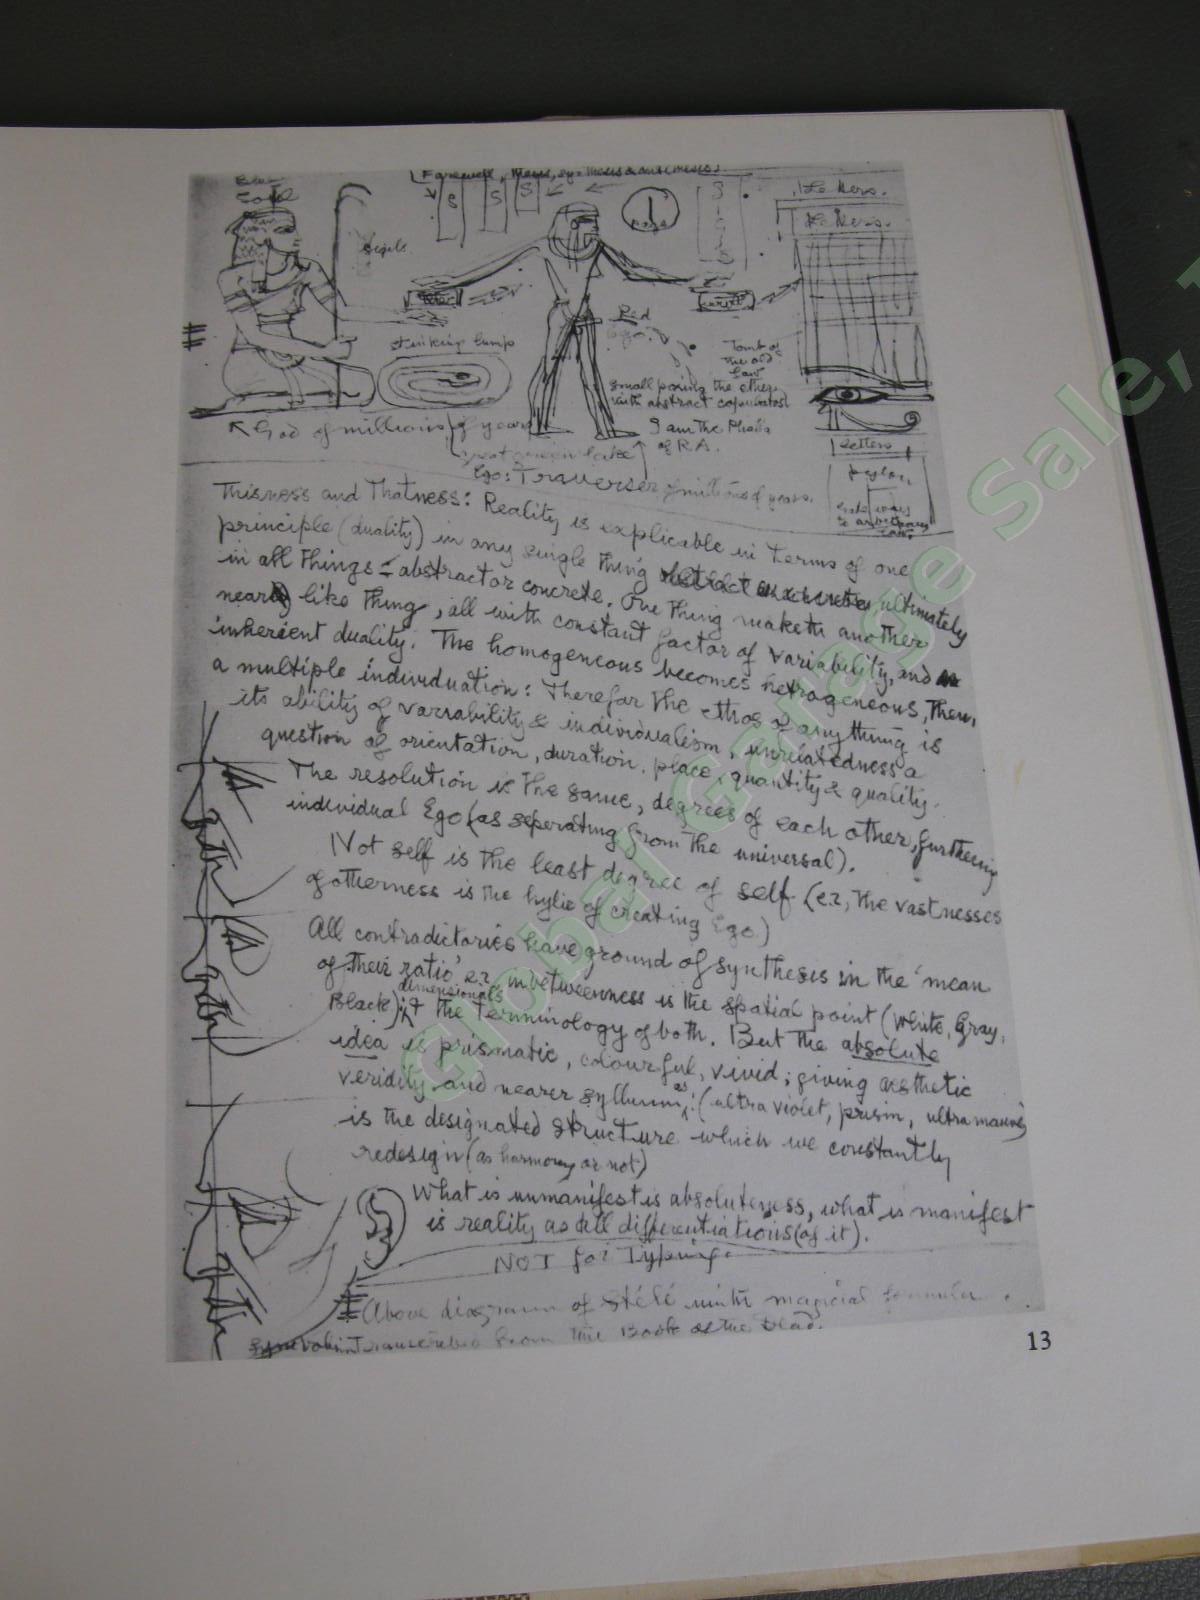 Farewell,
S S S
sigils.
Letters.
Letters.
stinking lump
Red
Ego.
Tomb of
the old
law
with abstract
God of millions of years
great green lake
I am the
of RA.
Letters
pylon,
Ego: Traverser of millions of years.
Thisness and Thatness: Reality is explicable in terms of one
principle (duality) in any single thing ultimately
in all things = abstract or concrete. One thing maketh another
near like thing, all with constant factor of variability, and
inherient duality. The homogeneous becomes hetrogeneous, then,
a multiple individuation: Therefor the ethos of anything is
its ability of varrability & individualism, unrelatedness a
question of orientation, duration, place, quantity & quality.
The resolution is the same, degrees of each other, furthering
individual Ego (as seperating from the universal).
Not self is the least degree of self (e.x, the vastnesses
of otherness is the hylie of creating Ego.)
All contradictories have ground of synthesis in the 'mean
of their ratio' e.x. inbetweenness is the spatial point (white, Gray,
dimensionals
Black) the terminology of both. But the absolute
idea is prismatic, colourful, vivid; giving aesthetic
veridity and nearer as: (ultra violet, prism, ultra mauve)
is the designated structure which we constantly
redesign (as harmony or not)
What is unmanifest is absoluteness, what is manifest
is reality as all differentiations (of it).
NOT for Typing.
(Above diagram of Stélé with magicial formula
transcribed from the Book of the Dead.
13
Global Garage Sale,